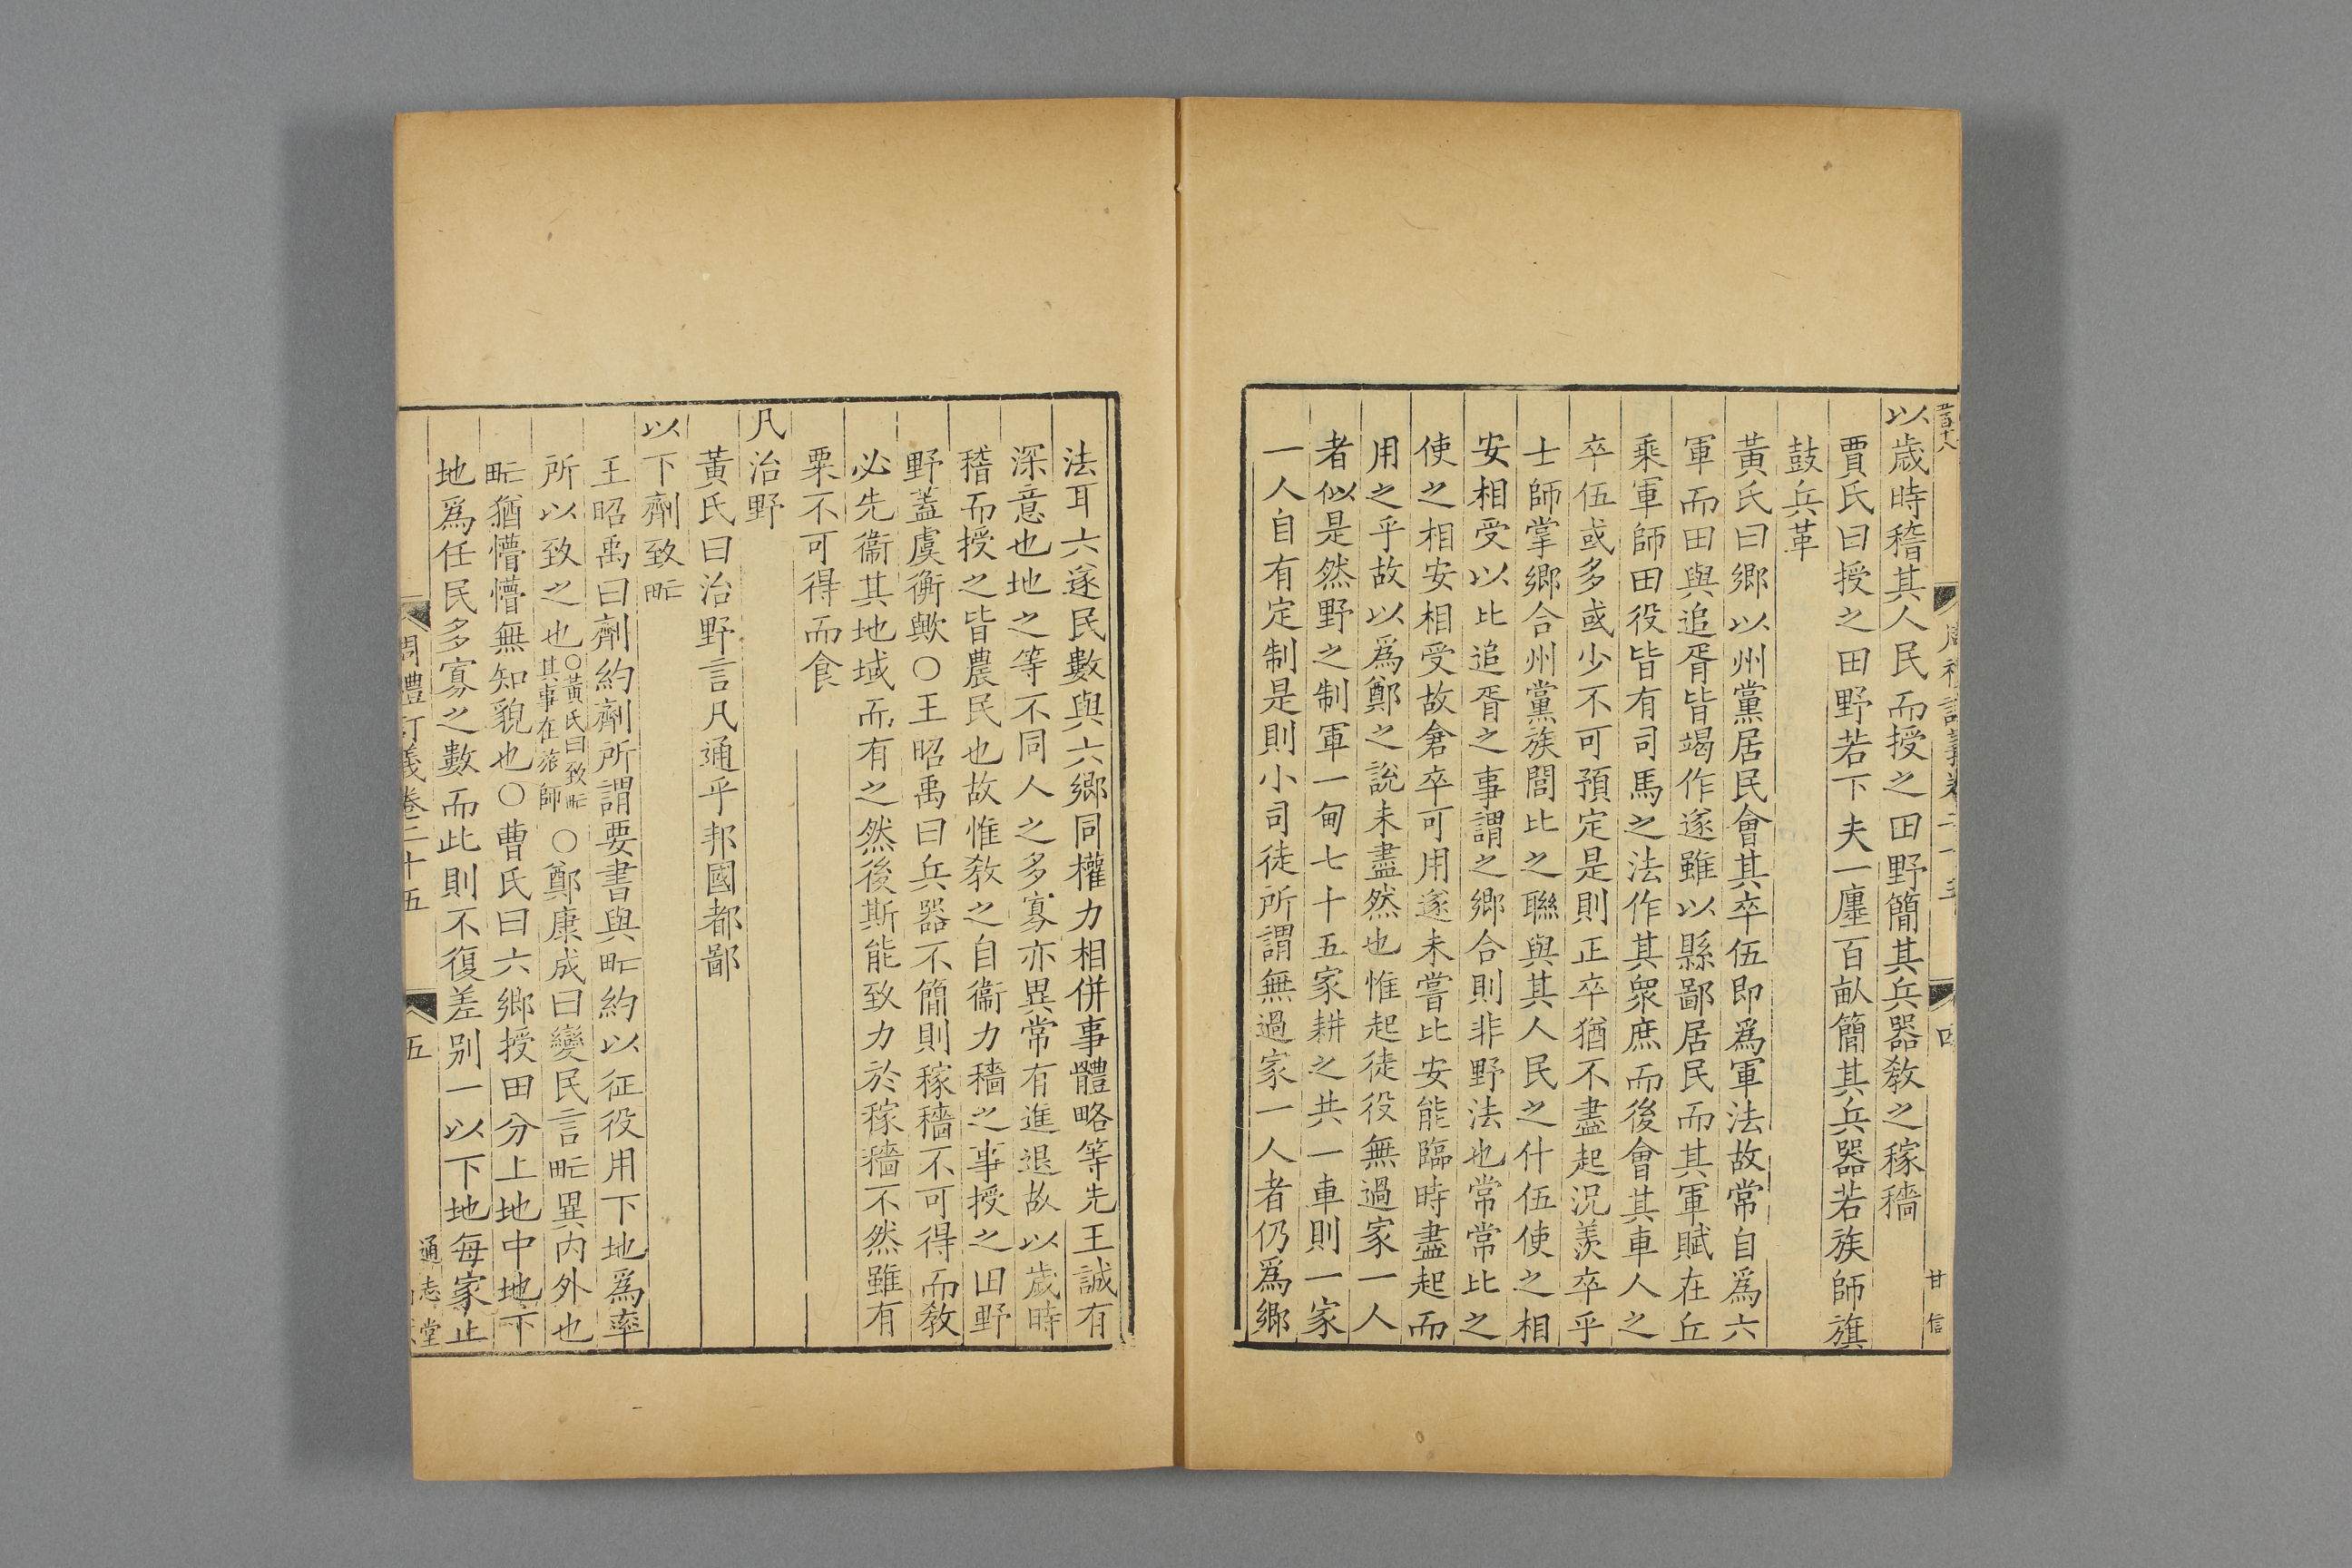 以歳時稽其人民而授之田野簡其兵器敎之稼穡
賈氏曰授之田野若下夫一廛百畝簡其兵器若族師旗
鼓兵革
黃氏曰鄉以州黨居民會其卒伍即爲軍法故常自爲六
軍而田與追胥皆竭作遂雖以縣鄙居民而其軍賦在丘
乘軍師田役皆有司馬之法作其衆庶而後會其車人之
卒伍或多或少不可預定是則正卒猶不盡起況羨卒乎
士師掌鄉合州黨族閭比之聯與其人民之什伍使之相
安相受以比追胥之事謂之鄉合則非野法也常常比之
使之相安相受故倉卒可用遂未嘗比安能臨時盡起而
用之乎故以爲鄭之說未盡然也惟起徒役無過家一人
者似是然野之制軍一甸七十五家耕之共一車則一家
一人自有定制是則小司徒所謂無過家一人者仍爲鄉
四
甘信
法耳六遂民數與六鄉同權力相併事體略等先王誠有
深意也地之等不同人之多寡亦異常有進退故以歲時
稽而授之皆農民也故惟敎之自衞力穡之事授之田野
野蓋虞衡歟○王昭禹曰兵器不簡則稼穡不可得而敎
必先衞其地域而有之然後斯能致力於稼穡不然雖有
粟不可得而食
凡治野
黃氏曰治野言凡通乎邦國都鄙
以下劑致甿
王昭禹曰劑約劑所謂要書與甿約以征役用下地爲率
所以致之也○黃氏曰致甿其事在旅師○鄭康成曰變民言甿異內外也
甿猶懵懵無知貌也○曹氏曰六鄉授田分上地中地下
地爲任民多寡之數而此則不復差別一以下地每家止
周禮訂義卷二十五
五
通志堂